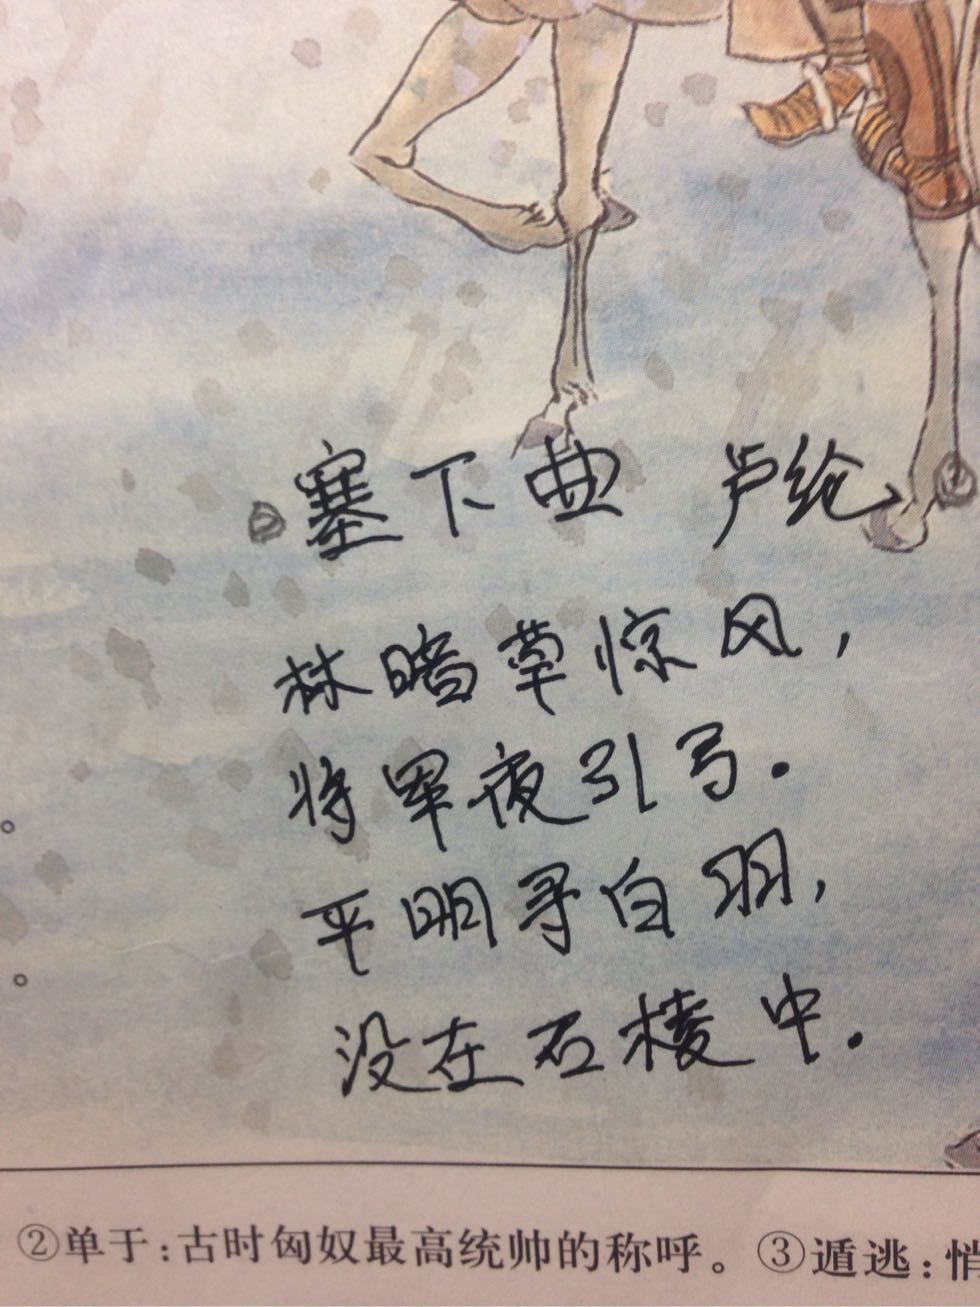 塞下曲 卢纶
林暗草惊风,
将军夜引弓.
平明寻白羽,
没在石棱中.
。
。
②单于:古时匈奴最高统帅的称呼。③遁逃:悄